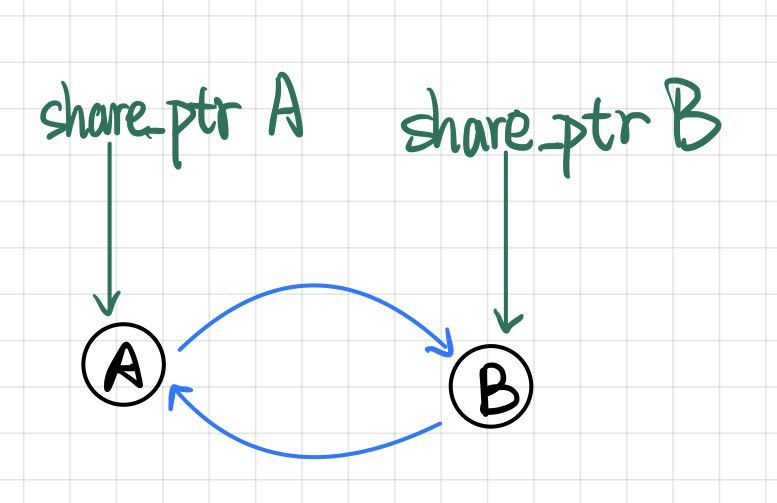 share_ptr A
share_ptr B
A
B